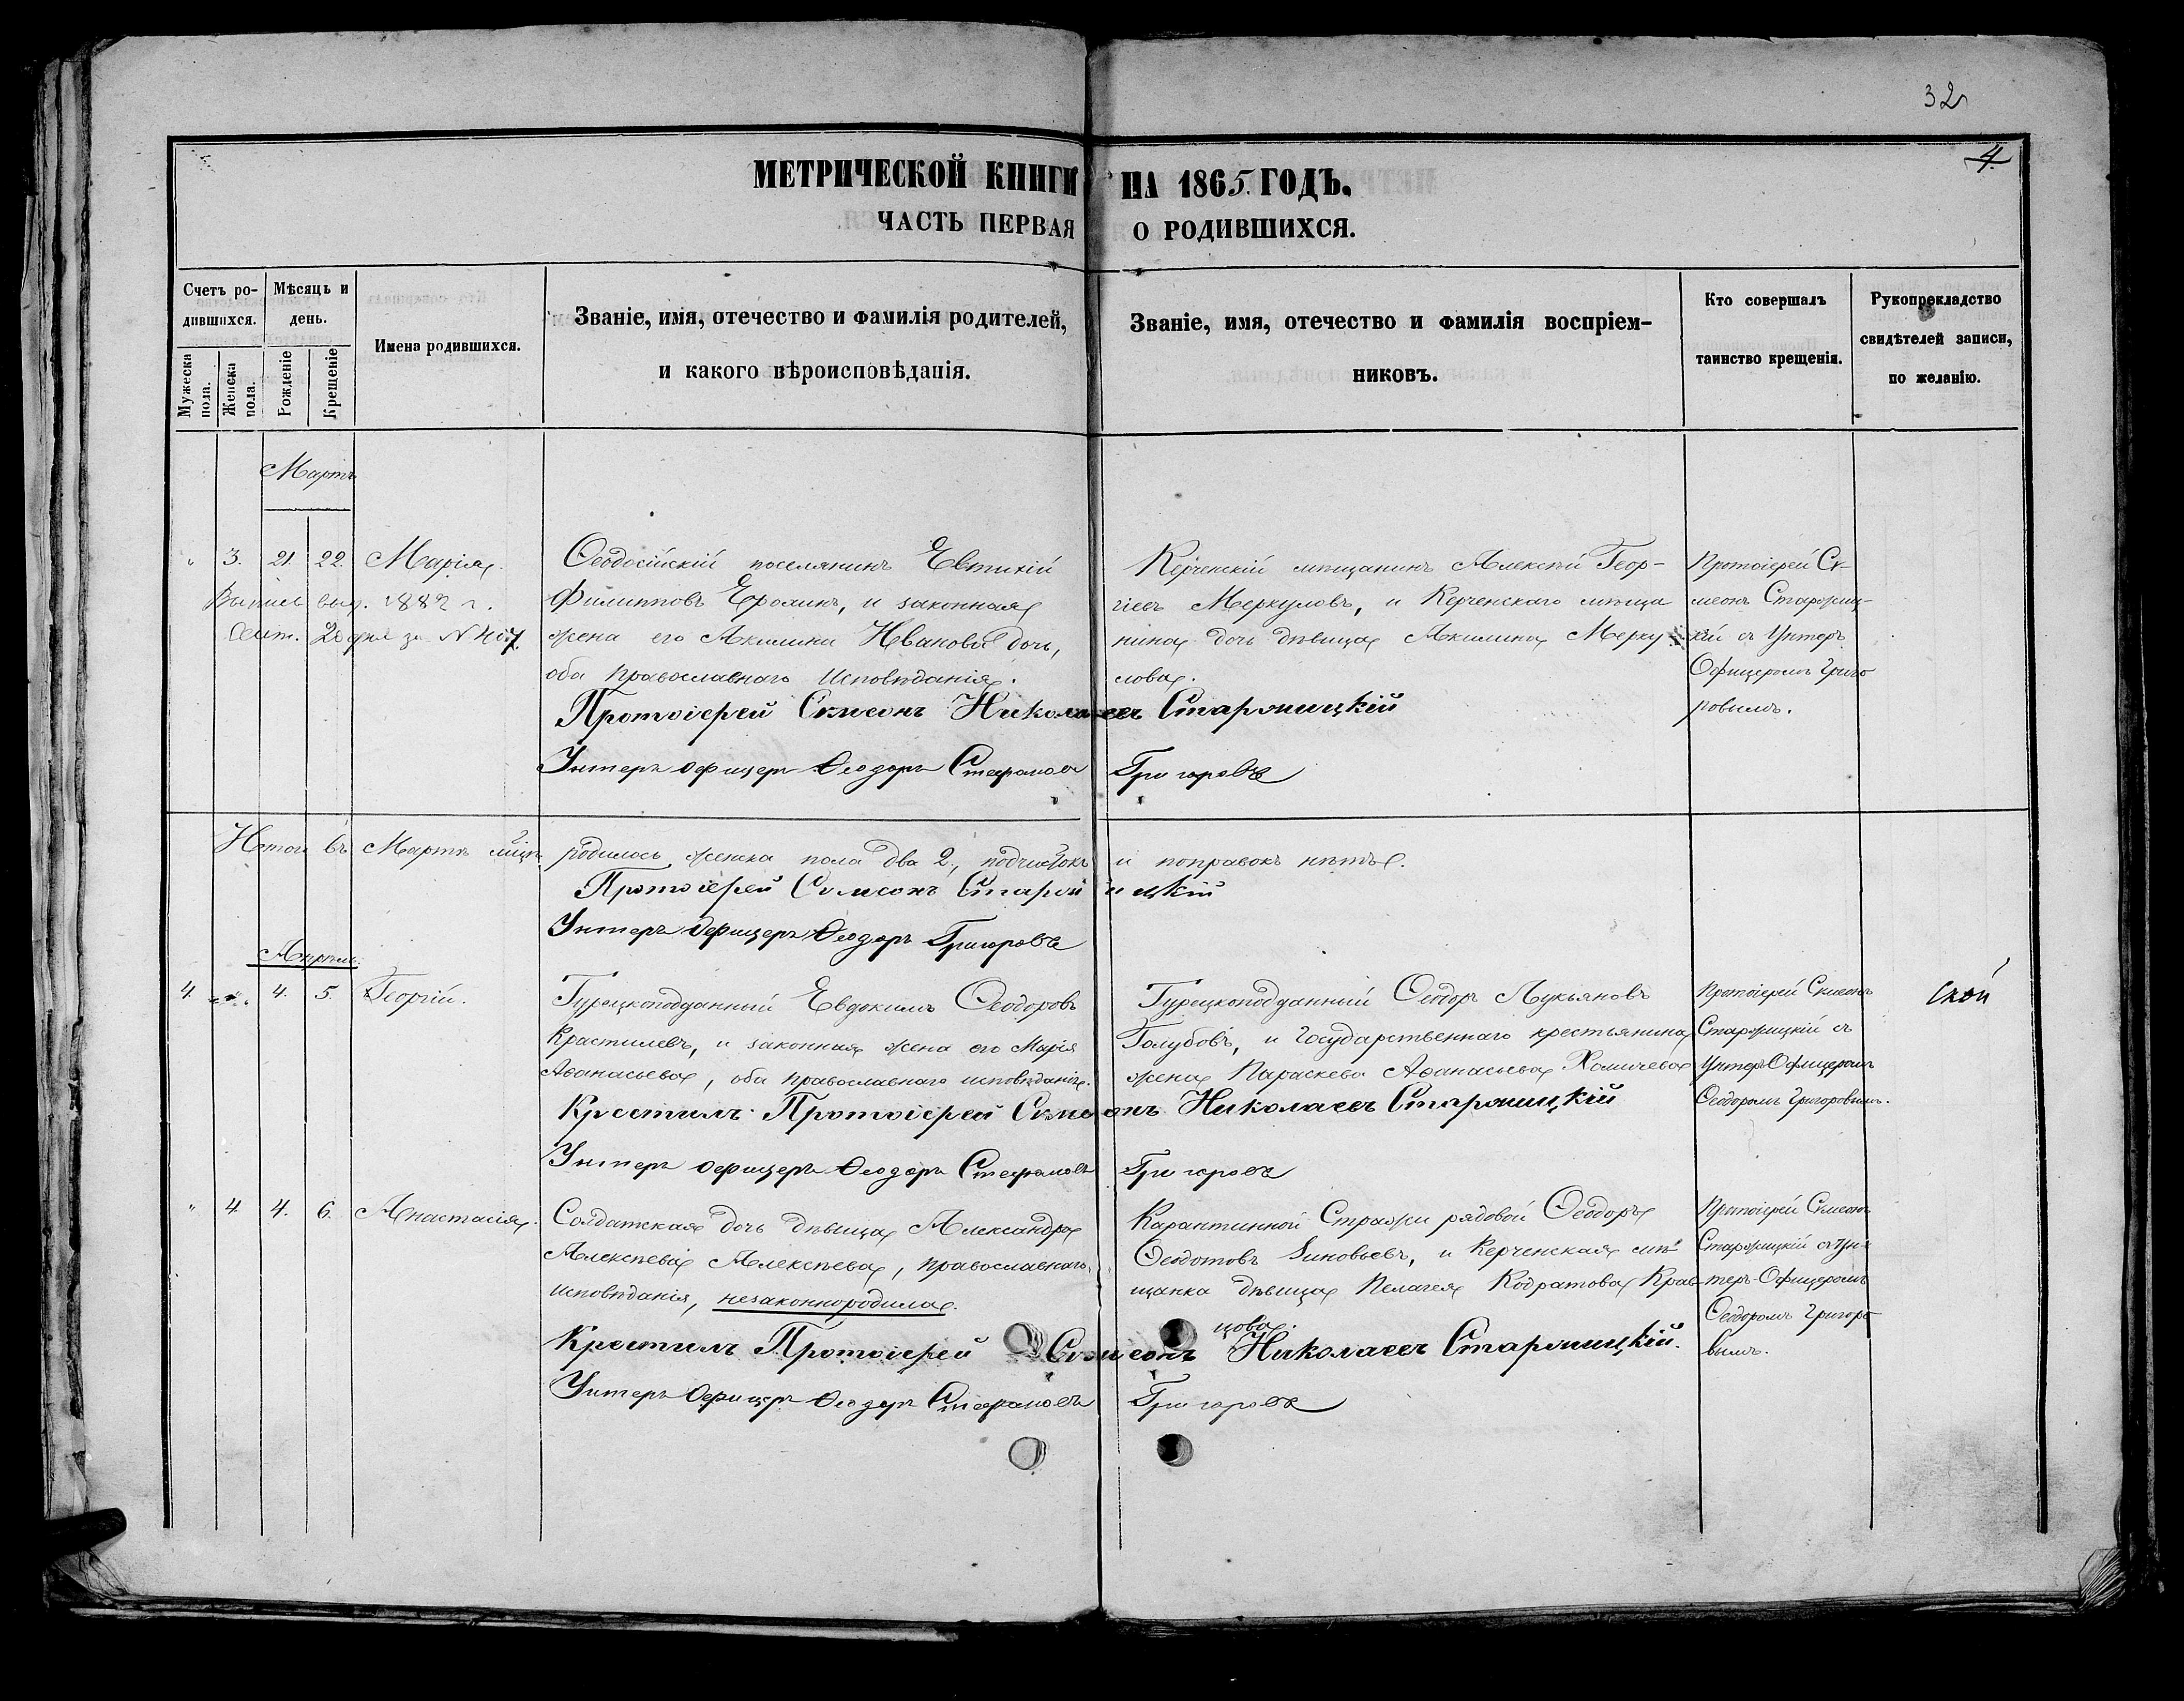 32
4.
МЕТРИЧЕСКОЙ КНИГИ НА 1865. ГОДЪ.
ЧАСТЬ ПЕРВАЯ О РОДИВШИХСЯ.
Счетъ ро-
дившихся.
Мужеска пола.
Женска пола.
Мѣсяцъ и
день.
Рожденіе
Крещеніе
Имена родившихся.
Званіе, имя, отечество и фамилія родителей,
и какого вѣроисповѣданія.
Званіе, имя, отечество и фамилія воспріем-
никовъ.
Кто совершалъ
таинство крещенія.
Рукоприкладство
свидѣтелей записи,
по желанію.
Мартъ
" 3. 21. 22. Марія.
Выпись выд. 1882 г.
Сент. 20 дня за № 407.
Ѳеодосійскій поселянинъ Евтихій
Филипповъ Ероминъ, и законная
жена его Акилина Иванова дочь,
оба православнаго исповѣданія.
Керченскій мѣщанинъ Алексѣй Геор-
гіевъ Меркуловъ, и Керченскаго мѣща
нина дочь дѣвица Акилина Мерку
лова.
Протоіерей Си-
меонъ Старжиц-
кій съ Унтеръ
Офицеромъ Григо
ровымъ.
Протоіерей Симеонъ Николаевъ Старжицкій
Унтеръ офицеръ Ѳеодоръ Стефановъ Григоровъ
Итого въ Мартѣ мцѣ родилось женска пола два 2., подчистокъ и поправокъ нѣтъ.
Протоіерей Симеонъ Старжицкій
Унтеръ Офицеръ Ѳеодоръ Григоровъ
Апрѣль.
4. " 4. 5. Георгій.
Турецкоподданный Евдокимъ Ѳеодоровъ
Крастилевъ, и законная жена его Марія
Аѳанасьева, оба православнаго исповѣданія.
Турецкоподданный Ѳеодоръ Лукьяновъ
Голубовъ, и Государственнаго крестьянина
жена Параскева Аѳанасьева Хомичева
Протоіерей Симеонъ
Старжицкій съ
Унтеръ Офицеромъ
Ѳеодоромъ Григоровымъ.
Крестилъ Протоіерей Симеонъ Николаевъ Старжицкій
Унтеръ офицеръ Ѳеодоръ Стефановъ Григоровъ
" 4 4. 6. Анастасія.
Солдатская дочь дѣвица Александра
Алексѣева Алексѣева, православнаго
исповѣданія, незаконнородила.
Карантинной Стражи рядовой Ѳеодоръ
Ѳеодотовъ Зиновьевъ, и Керченская мѣ
щанка дѣвица Пелагея Кодратова Крав-
цова.
Протоіерей Симеонъ
Старжицкій съ Ун-
теръ-Офицеромъ
Ѳеодоромъ Григоро
вымъ.
Крестилъ Протоіерей Симеонъ Николаевъ Старжицкій.
Унтеръ Офицеръ Ѳеодоръ Стефановъ Григоровъ